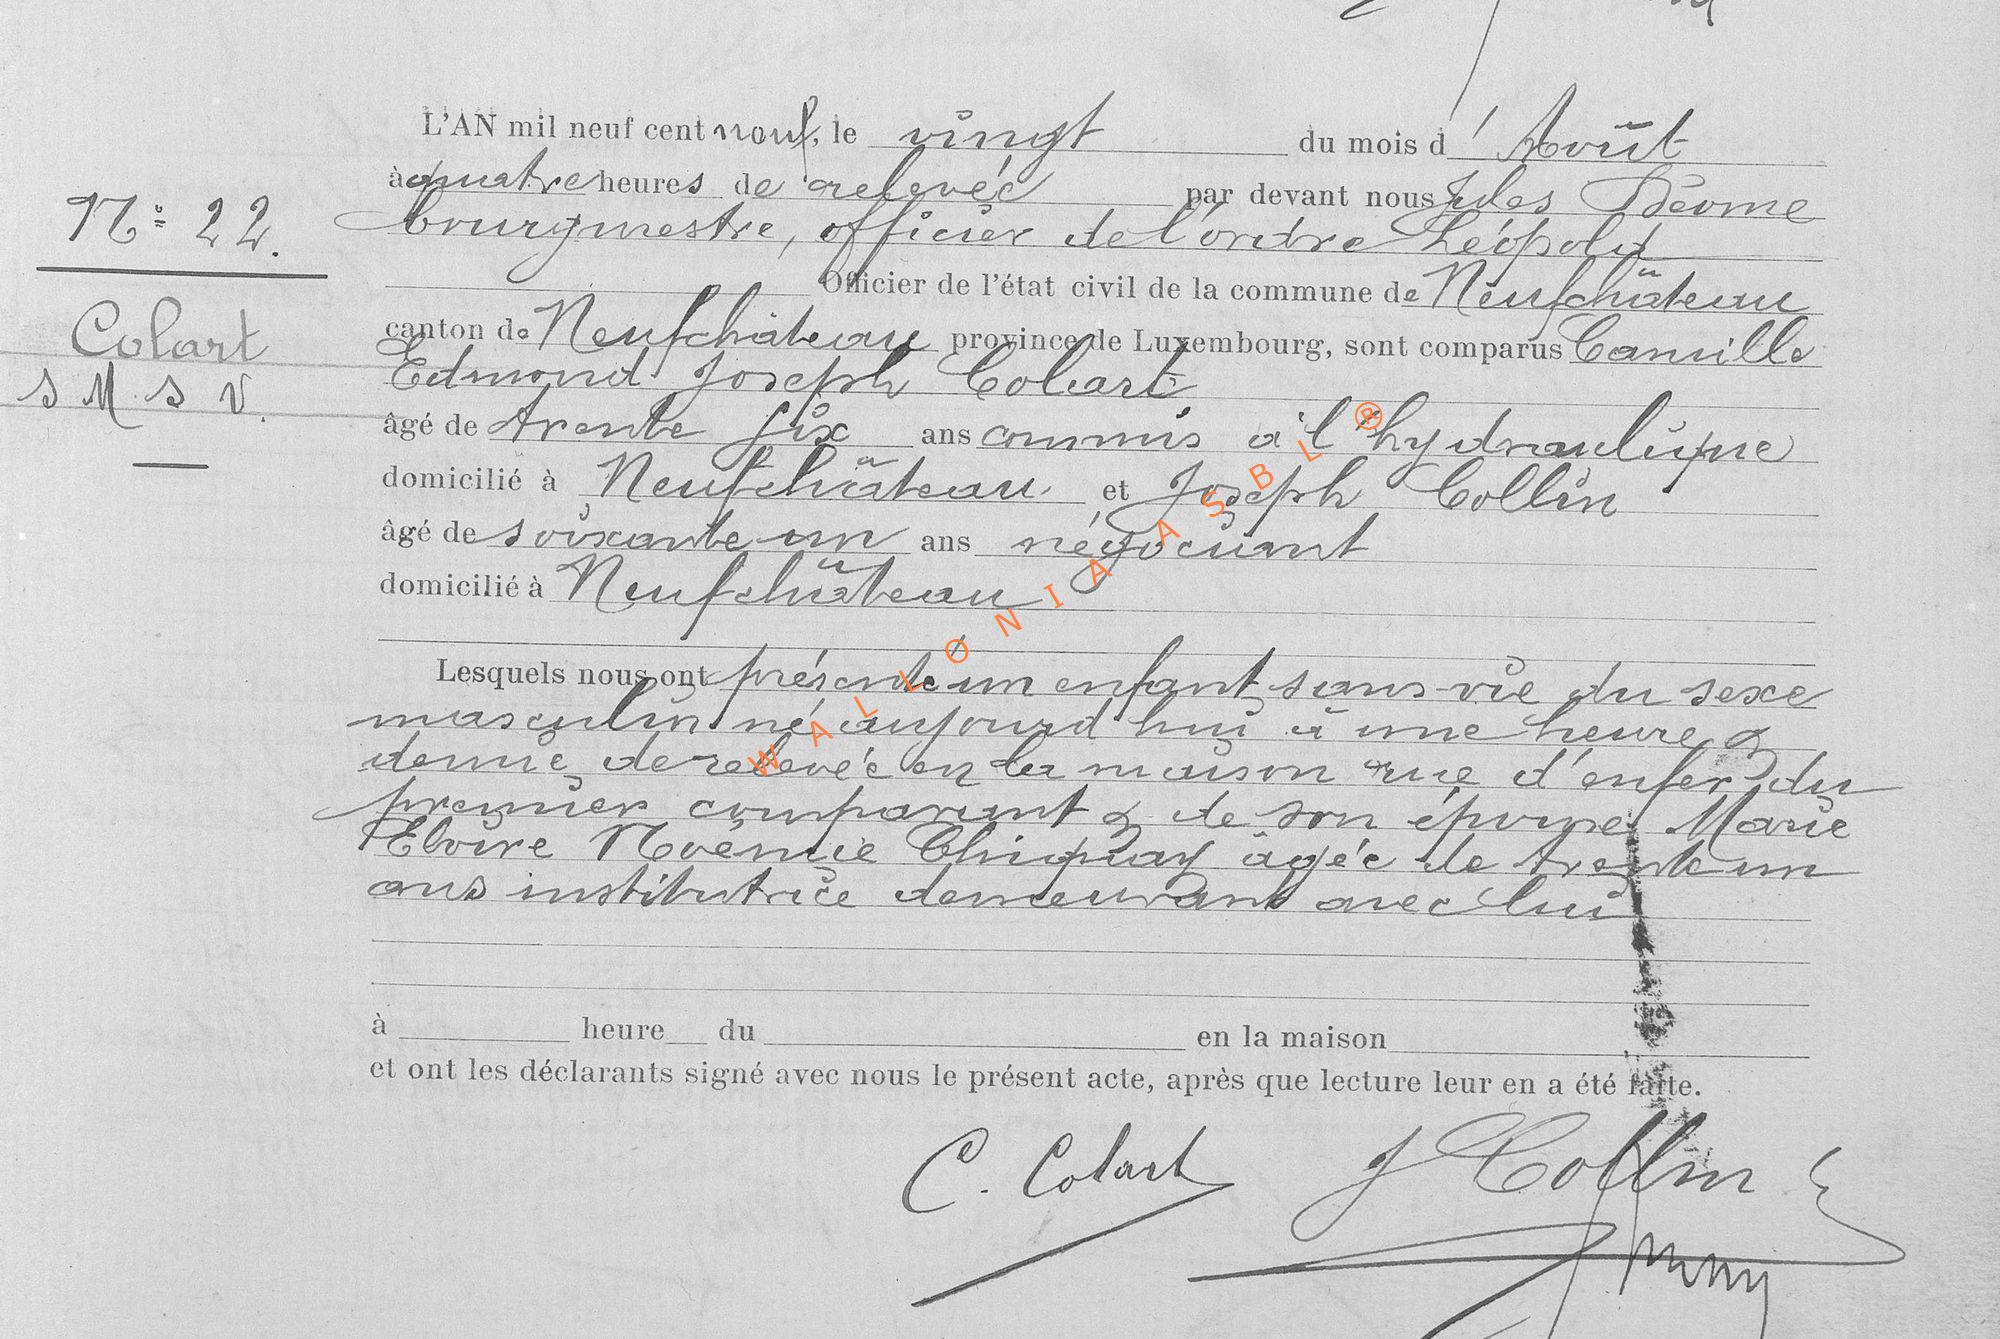 L'AN mil neuf cent neuf, le vingt du mois d'Août
à quatre heures de relevée par devant nous Jules
bourgmestre, officier de l'ordre Léopold
Officier de l'état civil de la commune de Neufchâteau
canton de Neufchâteau province de Luxembourg, sont comparus Camille
Edmond Joseph Colart
âgé de trente six ans commis à l'hydraulique
domicilié à Neufchâteau et Joseph Collin
âgé de soixante un ans négociant
domicilié à Neufchâteau
Lesquels nous ont présenté un enfant sans vie du sexe
masculin né aujourd'hui à une heure &
demie de relevée en la maison rue d'enfer du
premier comparant & de son épouse Marie
Elvire Noëmie âgée de trente un
ans institutrice demeurant avec lui
à heure du en la maison
et ont les déclarants signé avec nous le présent acte, après que lecture leur en a été faite.
C. Colart J Collin
No 22.
Colart
S M S V.
WALLONIA ASBL ®